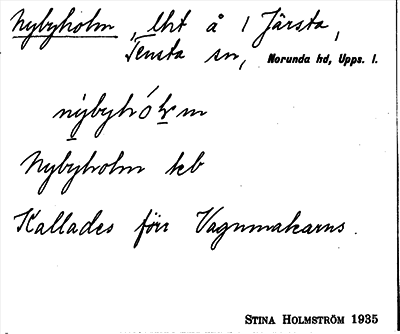 Nybyholm, lht å 1 Järsta,
Tensta sn, Norunda hd, Upps. l.
nybyhólm
Nybyholm kb
Kallades förr Vagnmakarns.
STINA HOLMSTRÖM 1935